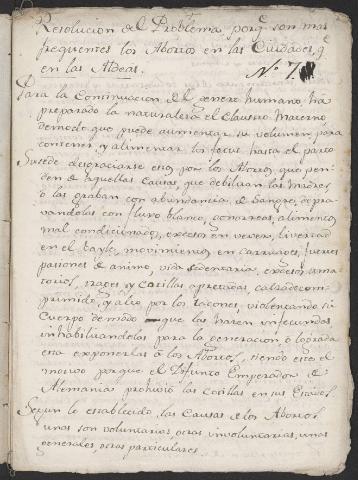 Resolucion del Problema porq.e son mas
frequentes los Abortos en las Ciudades, q.e
en las Aldeas.
N.o 7.
Para la Continuacion del genero humano, ha
preparado la naturaleza el Claustro Materno
demodo que puede aumentar su volumen, para
contener, y alimentar los fetus hasta el parto
Sucede desgraciarse esto por los Abortos, que pen-
den de aquellas Causas, que debilitan las Madres,
ò las graban con abundancia de Sangre, depra-
vandolas con fluxo blanco, gonorreas, alimentos
mal condicionados, excesos en vever, livertad
en el bayle, movimientos en carruages, fuertes
passiones de animo, vida sedentaria, excesos ama-
torios, trages y Cotillas apretadas, calzado com-
primido, y alto por los tacones, violentando su
Cuerpo demodo que las haren infecundas
inhabilitandolas para la generacion, ò lograda
esta exponerlas à los Abortos, siendo este el
motivo porque el Difunto Emperador de
Alemania prohivió las Cotillas en sus Estados.
Segun lo establecido, las Causas de los Abortos,
unas son voluntarias otras involuntarias, unas
generales, otras particulares.